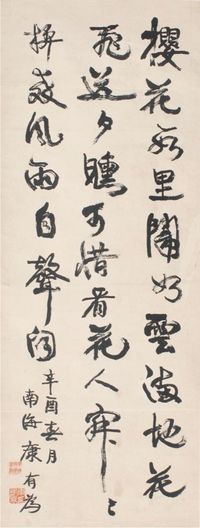 櫻花數里鬧如雲滿地花
飛送夕曛可惜看花人寂〻
拚教風雨自聲聞
辛酉春月
南海康有為